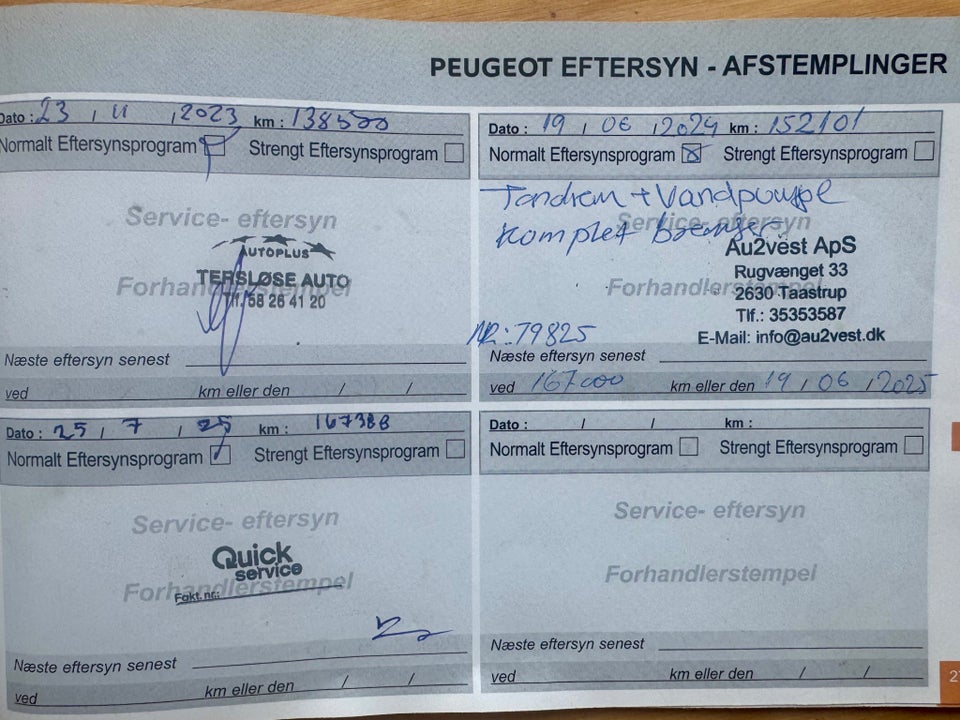 PEUGEOT EFTERSYN - AFSTEMPLINGER
Dato : 23 / 11 / 2023 km : 138500
Normalt Eftersynsprogram Strengt Eftersynsprogram
Service- eftersyn
AUTOPLUS
TERSLØSE AUTO
Tlf. 58 26 41 20
Forhandlerstempel
Næste eftersyn senest
ved km eller den / /
Dato : 19 / 06 / 2024 km : 152101
Normalt Eftersynsprogram Strengt Eftersynsprogram
Tandrem + Vandpumpe
Service- eftersyn
Komplet bremser
Au2vest ApS
Rugvænget 33
Forhandlerstempel
2630 Taastrup
Tlf.: 35353587
E-Mail: info@au2vest.dk
NR: 79825
Næste eftersyn senest
ved 167000 km eller den 19 / 06 / 2025
Dato : 25 / 7 / 25 km : 167388
Normalt Eftersynsprogram Strengt Eftersynsprogram
Service- eftersyn
Quick
service
Forhandlerstempel
Fakt. nr.:
Næste eftersyn senest
ved km eller den / /
Dato : / / km :
Normalt Eftersynsprogram Strengt Eftersynsprogram
Service- eftersyn
Forhandlerstempel
Næste eftersyn senest
ved km eller den / /